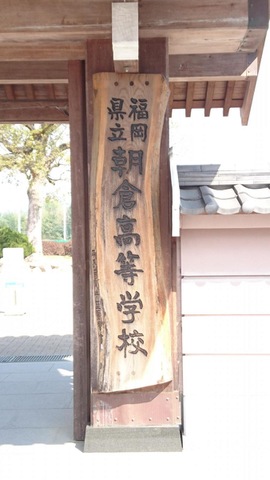 福岡
県立
朝倉高等学校